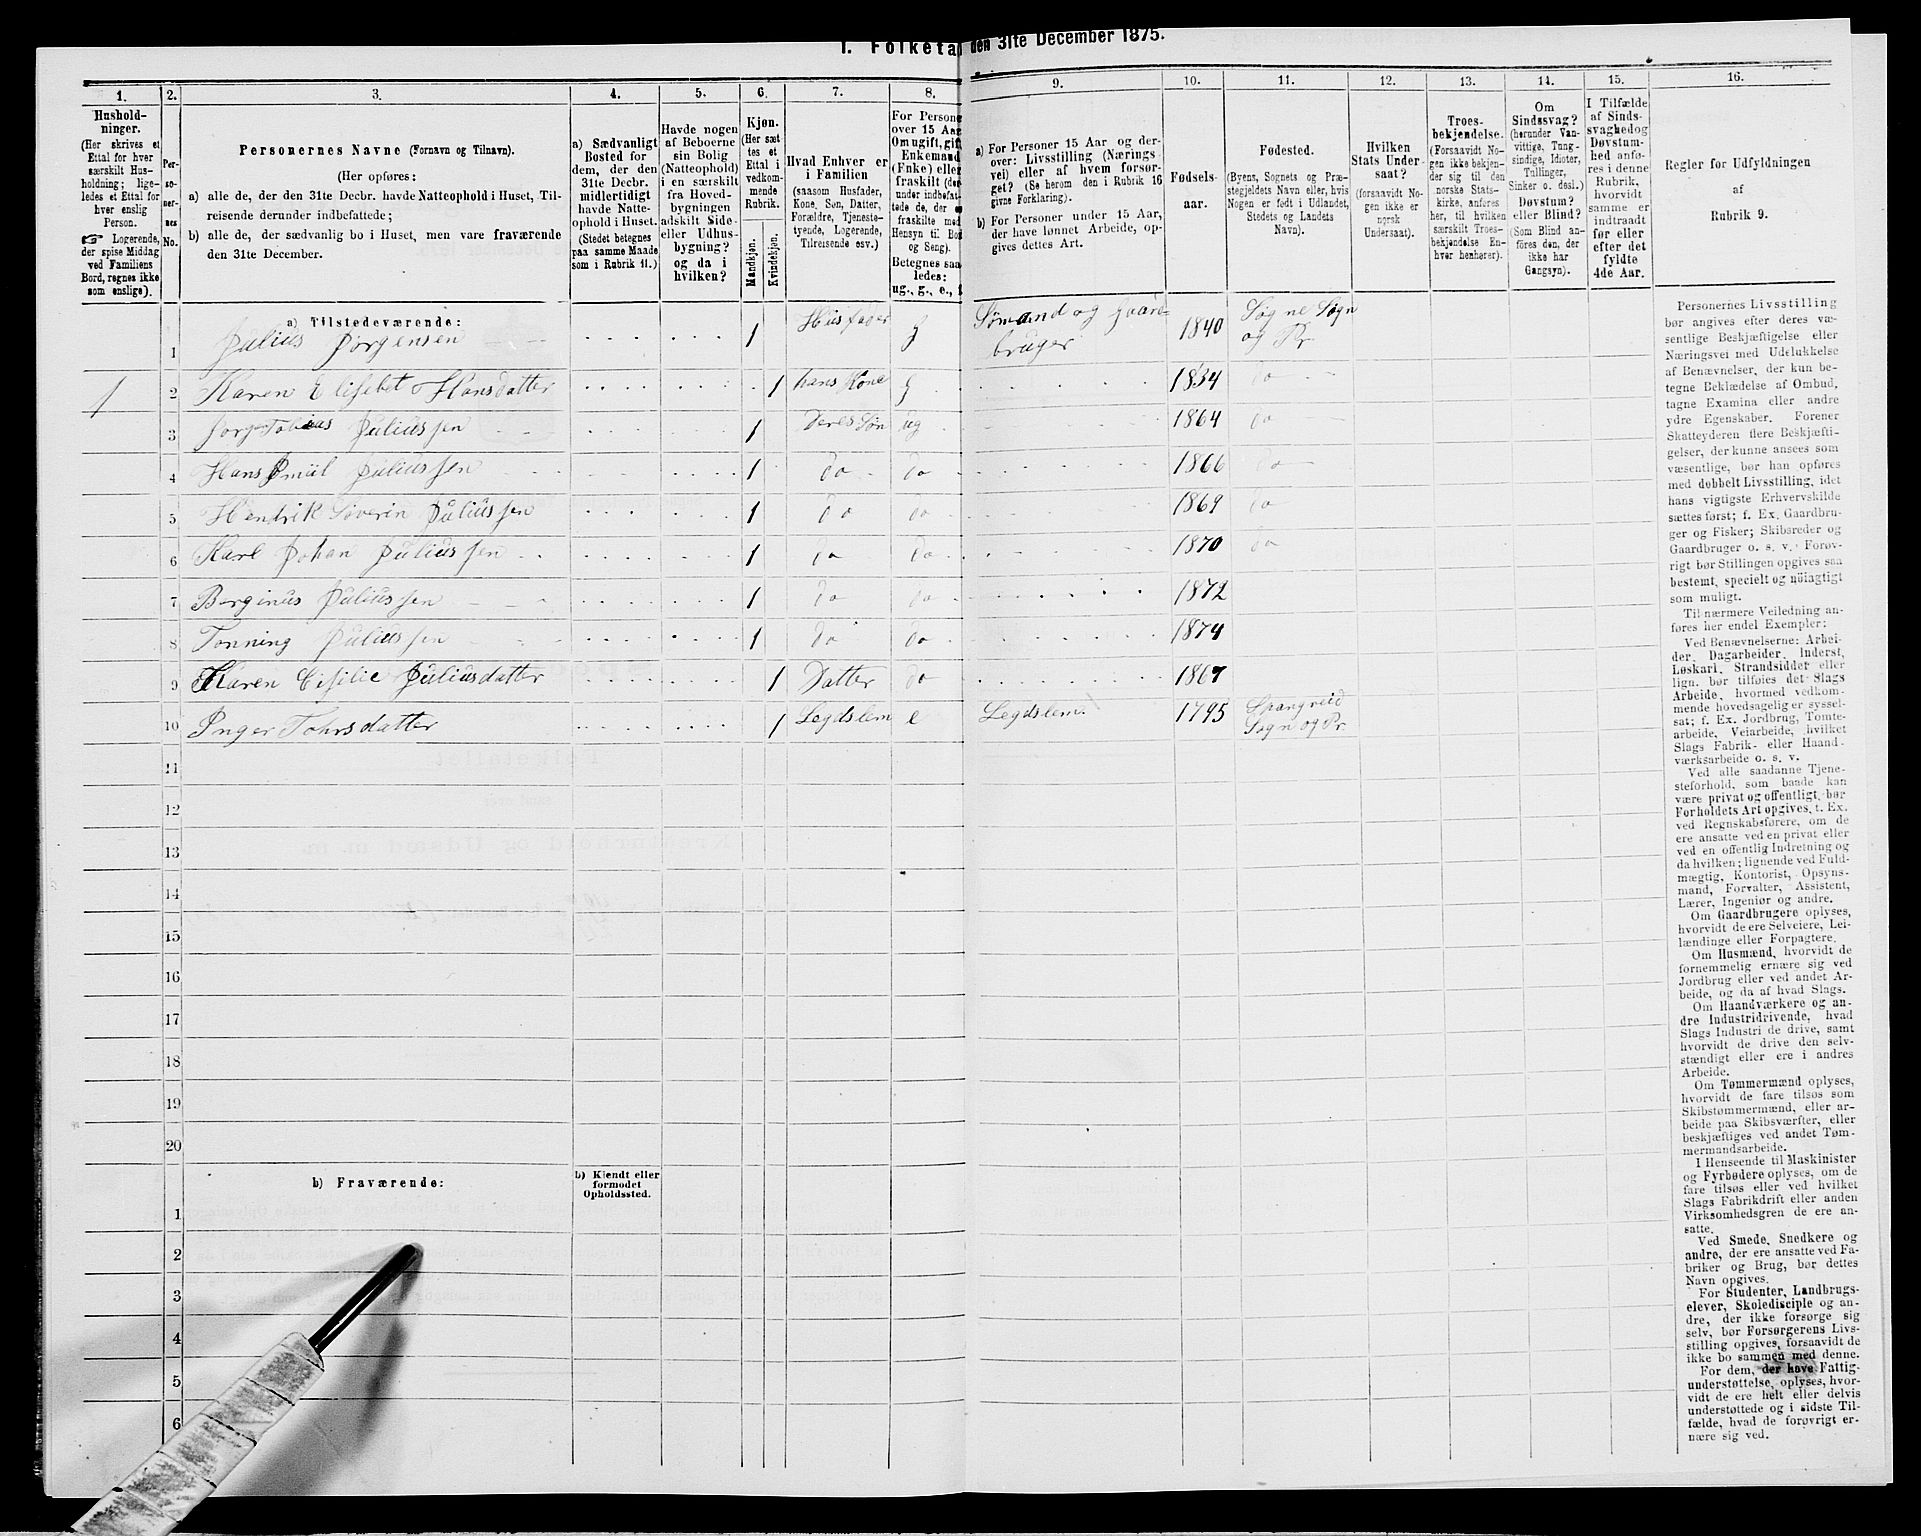 1. Folketal den 31te December 1875.
1.
Hushold-
ninger.
(Her skrives et
Ettal for hver
særskilt Hus-
holdning; lige-
ledes et Ettal for
hver enslig
Person.
Logerende,
der spise Middag
ved Familiens
Bord, regnes ikke
som enslige).
2.
Per-
so-
ner-
nes
No.
3.
Personernes Navne (Fornavn og Tilnavn).
(Her opføres:
a) alle de, der den 31te Decbr. havde Natteophold i Huset, Til-
reisende derunder indbefattede;
b) alle de, der sædvanlig bo i Huset, men vare fraværende
den 31te December.
4.
a) Sædvanligt
Bosted for
dem, der den
31te Decbr.
midlertidigt
havde Natte-
ophold i Huset.
(Stedet betegnes
paa samme Maade
som i Rubrik 11.)
5.
Havde nogen
af Beboerne
sin Bolig
(Natteophold)
i en særskilt
fra Hoved-
bygningen
adskilt Side-
eller Udhus-
bygning?
og da i
hvilken?
6.
Kjøn.
(Her sæt-
tes et
Ettal i
vedkom-
mende
Rubrik.
Mandkjøn.
Kvindekjøn.
7.
Hvad Enhver er
i Familien
(saasom Husfader,
Kone, Søn, Datter,
Forældre, Tjeneste-
tyende, Logerende,
Tilreisende osv.)
8.
For Persone
over 15 Aar
Om ugift, gift
Enkemand
(Enke) eller
fraskilt (der-
under indbefat-
tede de, der e
fraskilte med
Hensyn til Bo
og Seng).
Betegnes saa
ledes:
ug., g., e., f
9.
a) For Personer 15 Aar og der-
over: Livsstilling (Nærings
vei) eller af hvem forsør-
get? (Se herom den i Rubrik 16
givne Forklaring).
b) For Personer under 15 Aar,
der have lønnet Arbeide, op-
gives dettes Art.
10.
Fødsels-
aar.
11.
Fødested.
(Byens, Sognets og Præ-
stegjeldets Navn eller, hvis
Nogen er født i Udlandet,
Stedets og Landets
Navn).
12.
Hvilken
Stats Under-
saat?
(forsaavidt No-
gen ikke er
norsk
Undersaat).
13.
Troes-
bekjendelse.
(Forsaavidt No-
gen ikke bekjen-
der sig til den
norske Stats-
kirke, anføres
her, til hvilken
særskilt Troes-
bekjendelse En-
hver henhører).
14.
Om
Sindssvag?
(herunder Van-
vittige, Tung-
sindige, Idioter,
Tullinger,
Sinker o. desl.)
Døvstum?
eller Blind?
(Som Blind an-
føres den, der
ikke har
Gangsyn).
15.
I Tilfælde
af Sinds-
svaghed og
Døvstum-
hed anfø-
res i denne
Rubrik,
hvorvidt
samme er
indtraadt
før eller
efter det
fyldte
4de Aar.
16.
Regler for Udfyldningen
af
Rubrik 9.
a) Tilstedeværende:
1 Julius Jørgensen 1 Husfader g Sømand og Gaard-
bruger 1840 Søgne Sogn
og Pr
1 2 Karen Elisebet Hansdatter 1 hans Kone g 1834 do
3 Julius sen 1 Deres Søn ug 1864 do
4 Hans Emil Julius sen 1 do do 1866 do
5 Hendrik Severin Julius sen 1 do do 1869 do
6 Karl Johan Julius sen 1 do do 1870 do
7 Berginus Julius sen 1 do do 1872
8 Tonning Julius sen 1 do do 1874
9 Karen Cesilie Juliusdatter 1 Datter do 1867
10 Inger Tohrsdatter 1 Legdslem e Legdslem. 1795 Spangreid
Sogn og Pr.
11
12
13
14
15
16
17
18
19
20
b) Fraværende:
b) Kjendt eller
formodet
Opholdssted.
1
2
3
4
5
6
Personernes Livsstilling
bør angives efter deres væ-
sentlige Beskjæftigelse eller
Næringsvei med Udelukkelse
af Benævnelser, der kun be-
tegne Beklædelse af Ombud,
tagne Examina eller andre
ydre Egenskaber. Forener
Skatteyderen flere Beskjæfti-
gelser, der kunne ansees som
væsentlige, bør han opføres
med dobbelt Livsstilling, idet
hans vigtigste Erhvervskilde
sættes først; f. Ex. Gaardbru-
ger og Fisker; Skibsreder og
Gaardbruger o. s. v. Forøv-
rigt bør Stillingen opgives saa
bestemt, specielt og nöiagtigt
som muligt.
Til nærmere Veiledning an-
føres her endel Exempler:
Ved Benævnelserne: Arbei-
der, Dagarbeider, Inderst,
Løskarl, Strandsidder eller
lign. bør tilføies det Slags
Arbeide, hvormed vedkom-
mende hovedsagelig er syssel-
sat; f. Ex. Jordbrug, Tomte-
arbeide, Veiarbeide, hvilket
Slags Fabrik- eller Haand-
værksarbeide o. s. v.
Ved alle saadanne Tjene-
steforhold, som baade kan
være privat og offentligt, bør
Forholdets Art opgives, t. Ex.
ved Regnskabsførere, om de
ere ansatte ved en privat eller
ved en offentlig Indretning og
da hvilken; lignende ved Fuld-
mægtig, Kontorist, Opsyns-
mand, Forvalter, Assistent,
Lærer, Ingeniør og andre.
Om Gaardbrugere oplyses,
hvorvidt de ere Selveiere, Lei-
lændinge eller Forpagtere.
Om Husmænd, hvorvidt de
fornemmelig ernære sig ved
Jordbrug eller ved andet Ar-
beide, og da af hvad Slags.
Om Haandværkere og an-
dre Industridrivende, hvad
Slags Industri de drive, samt
hvorvidt de drive den selv-
stændigt eller ere i andres
Arbeide.
Om Tømmermænd oplyses,
hvorvidt de fare tilsøs som
Skibstømmermænd, eller ar-
beide paa Skibsværfter, eller
beskjæftiges ved andet Tøm-
mermandsarbeide.
I Henseende til Maskinister
og Fyrbødere oplyses, om de
fare tilsøs eller ved hvilket
Slags Fabrikdrift eller anden
Virksomhedsgren de ere an-
satte.
Ved Smede, Snedkere og
andre, der ere ansatte ved Fa-
briker og Brug, bør dettes
Navn opgives.
For Studenter, Landbrugs-
elever, Skoledisciple og an-
dre, der ikke forsørge sig
selv, bør Forsørgerens Livs-
stilling opgives, forsaavidt de
ikke bo sammen med denne.
For dem, der have Fattig-
understøttelse, oplyses, hvor-
vidt de ere helt eller delvis
understøttede og i sidste Til-
fælde, hvad de forøvrigt er-
nære sig ved.